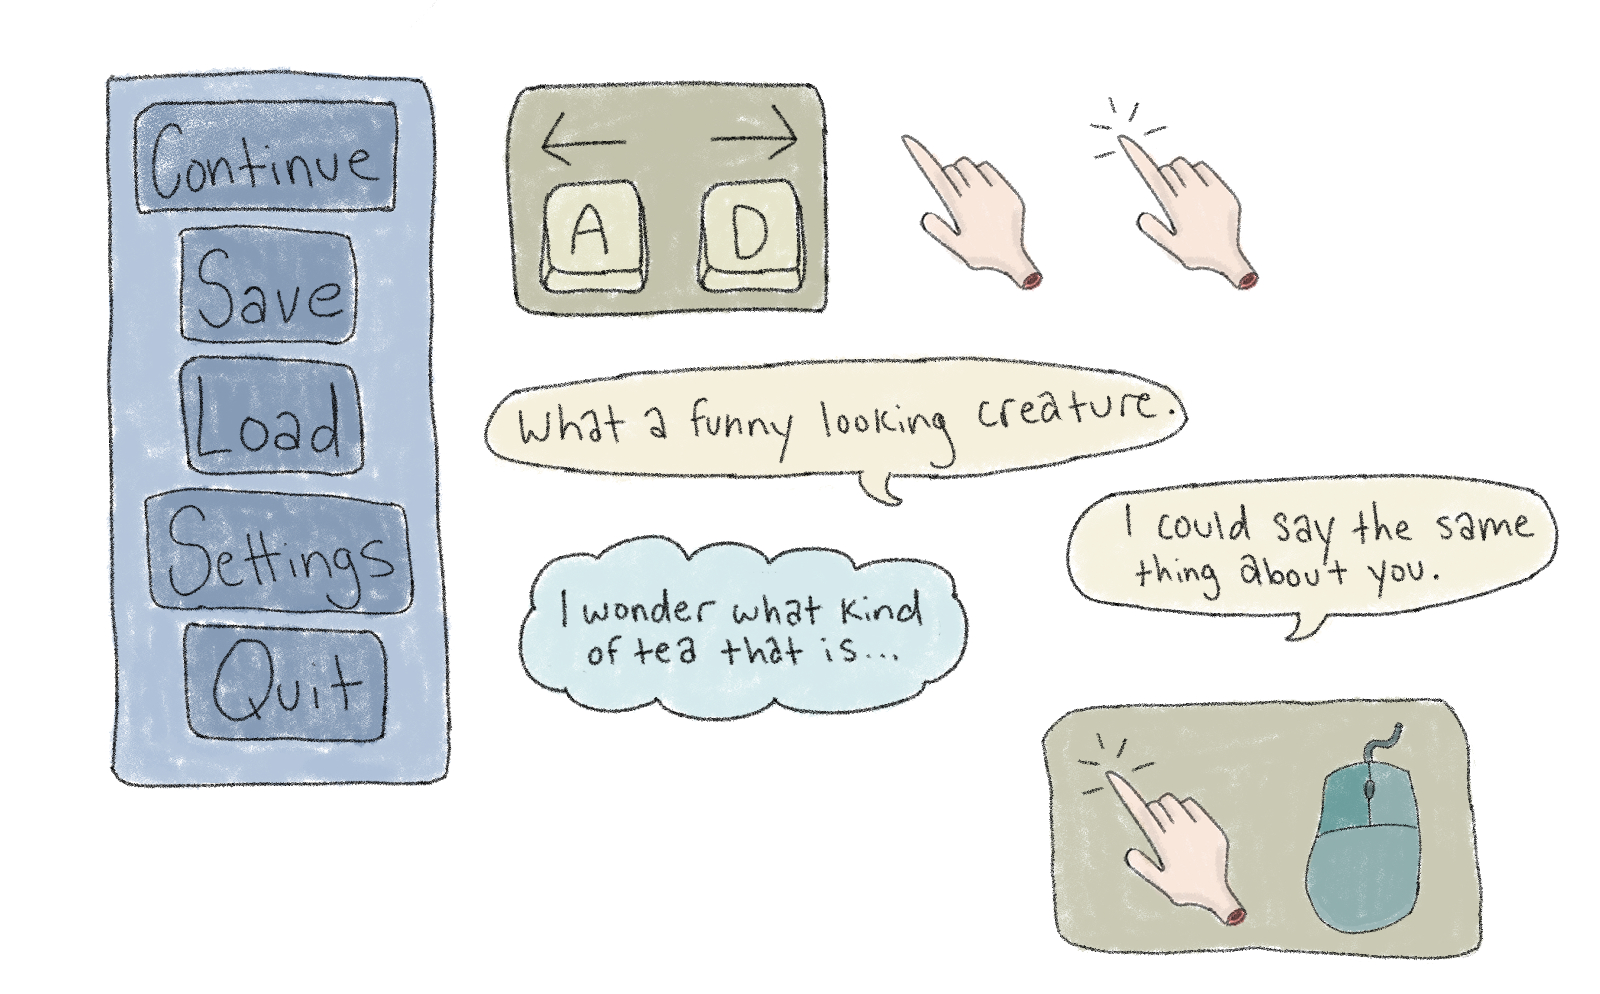 Continue
Save
Load
Settings
Quit
A
D
What a funny looking creature.
I could say the same
thing about you.
I wonder what kind
of tea that is...